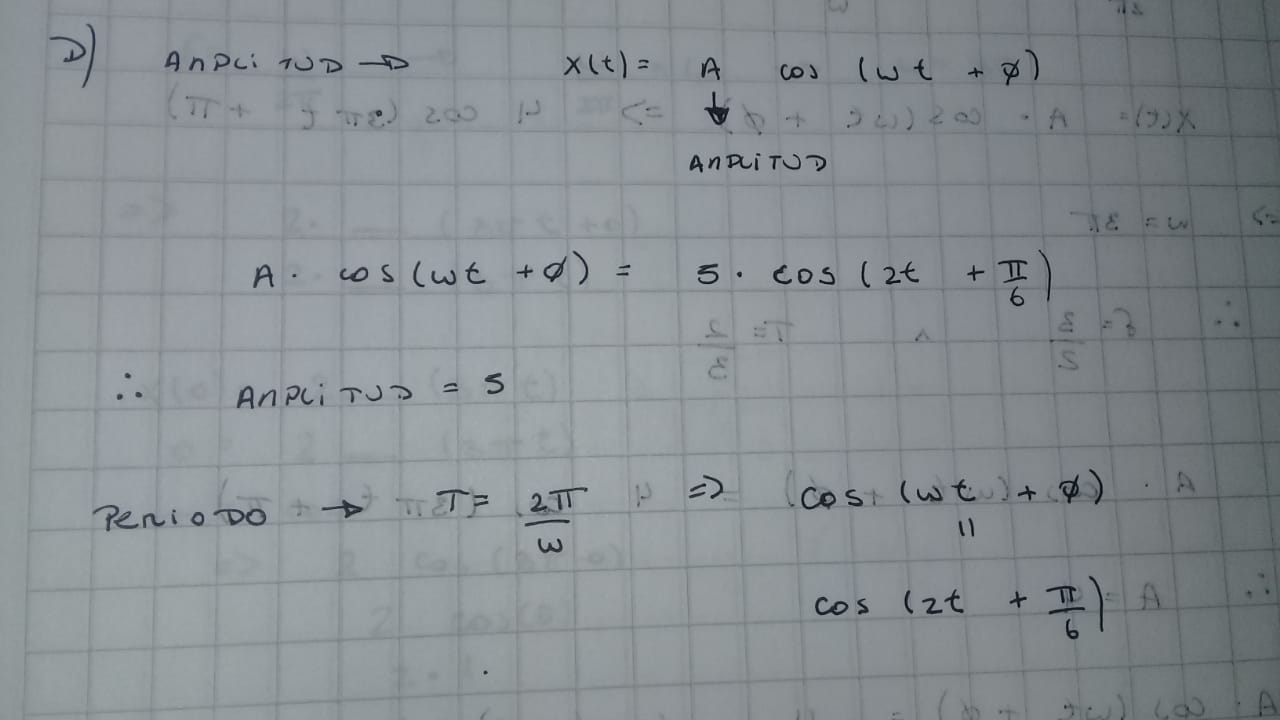 D) AMPLITUD → x(t) = A cos (wt + φ)
↓
AMPLITUD
A · cos (wt + φ) = 5 · cos (2t + π/6)
∴ AMPLITUD = 5
PERIODO → T = 2π/w => cos (wt + φ)
||
cos (2t + π/6)